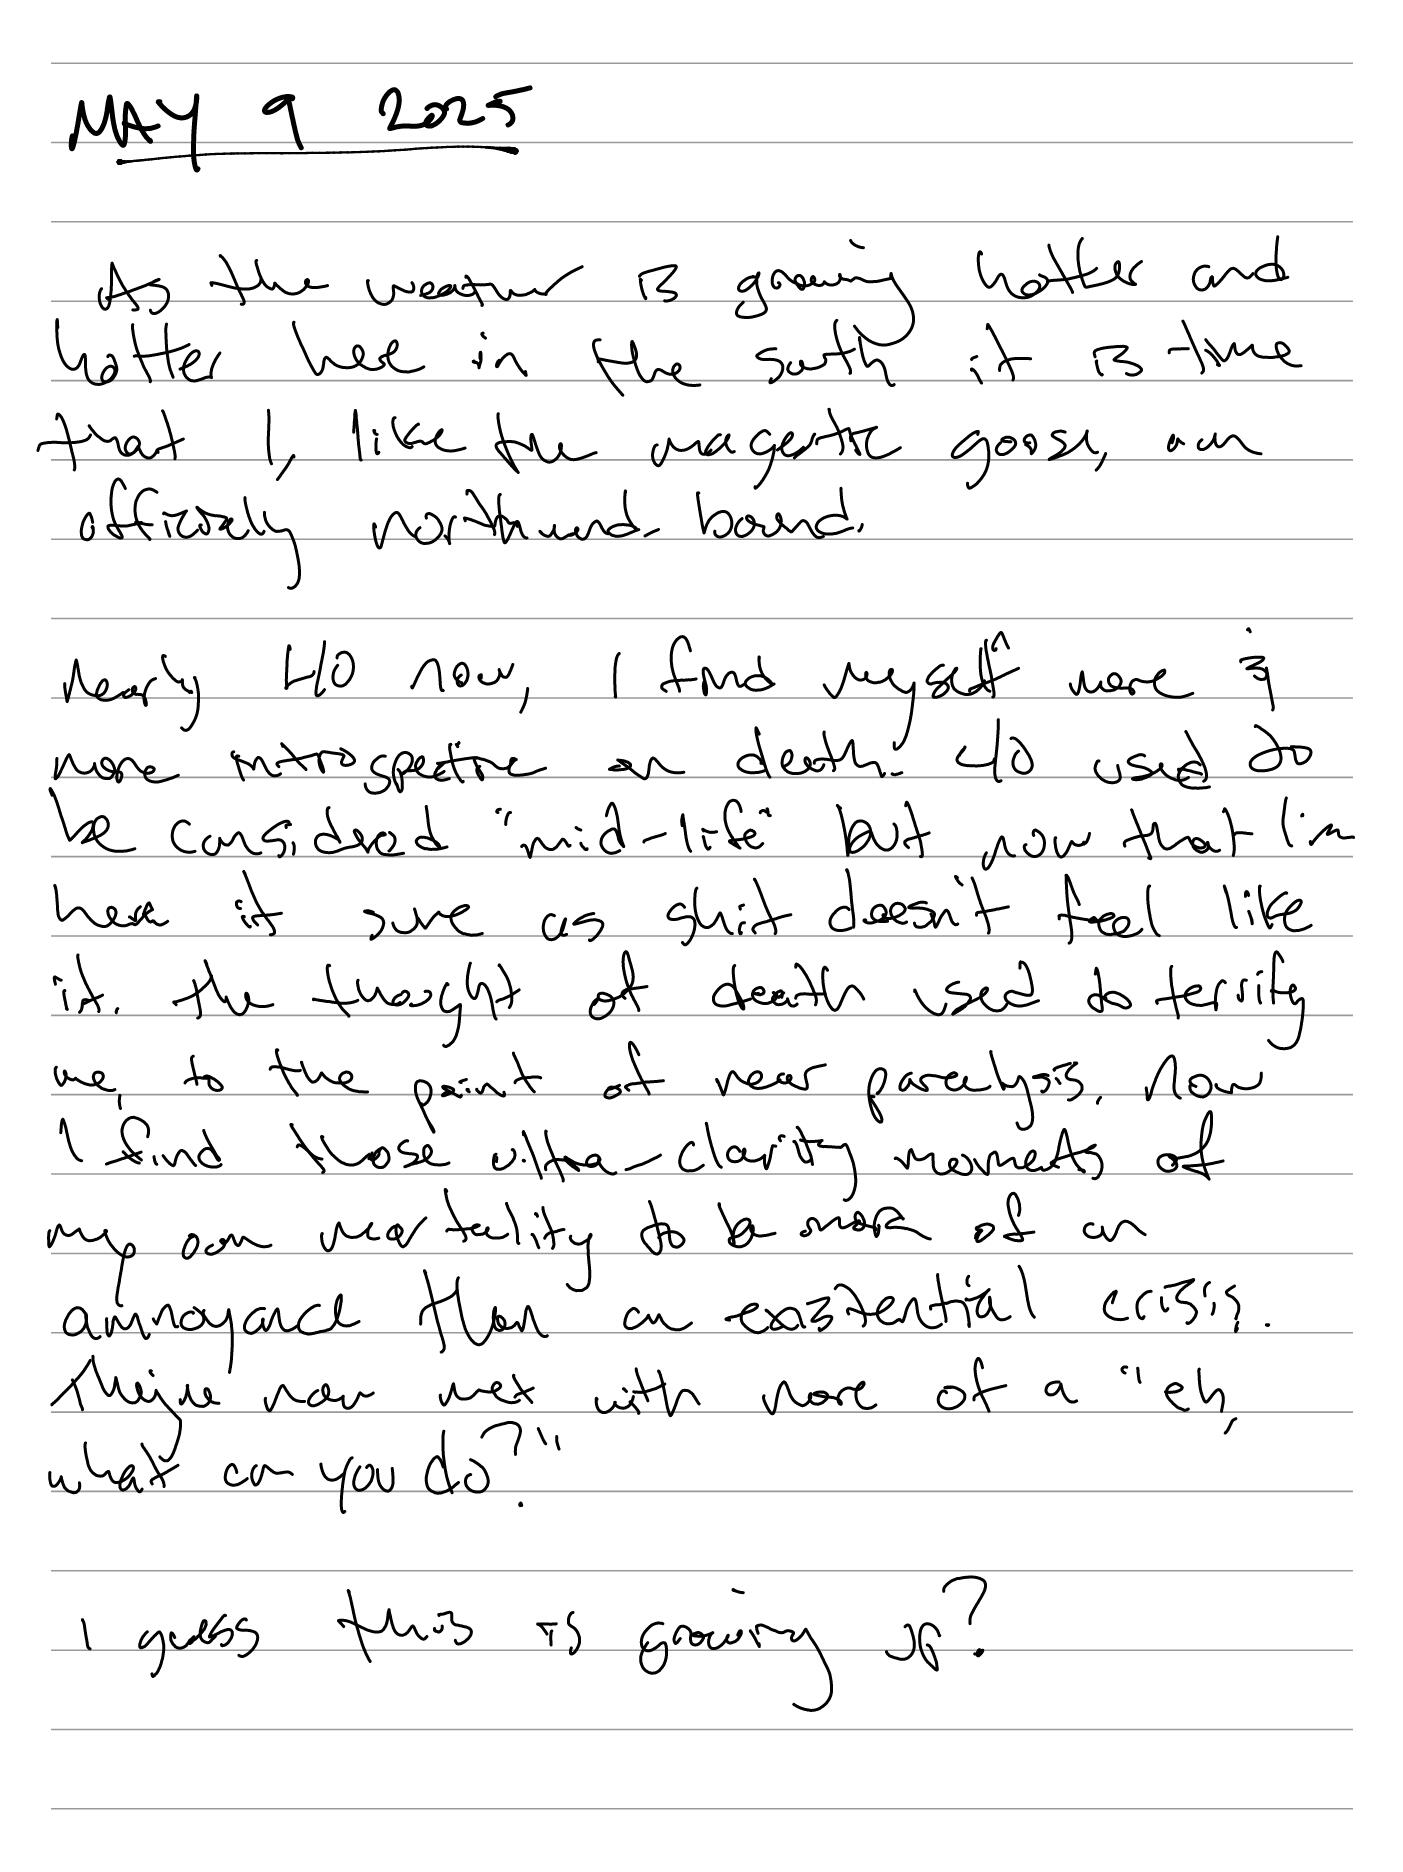 MAY 9 2025
As the weather is growing hotter and
hotter here in the south it is time
that I, like the magestic goose, am
officially northward-bound.
Nearly 40 now, I find myself more &
more introspective on death. 40 used to
be considered "mid-life" but now that I'm
here it sure as shit doesn't feel like
it. The thought of death used to terrify
me, to the point of near paralysis. Now
I find those ultra-clarity moments of
my own mortality to be more of an
annoyance than an existential crisis.
They're now met with more of a "eh,
what can you do?"
I guess this is growing up?